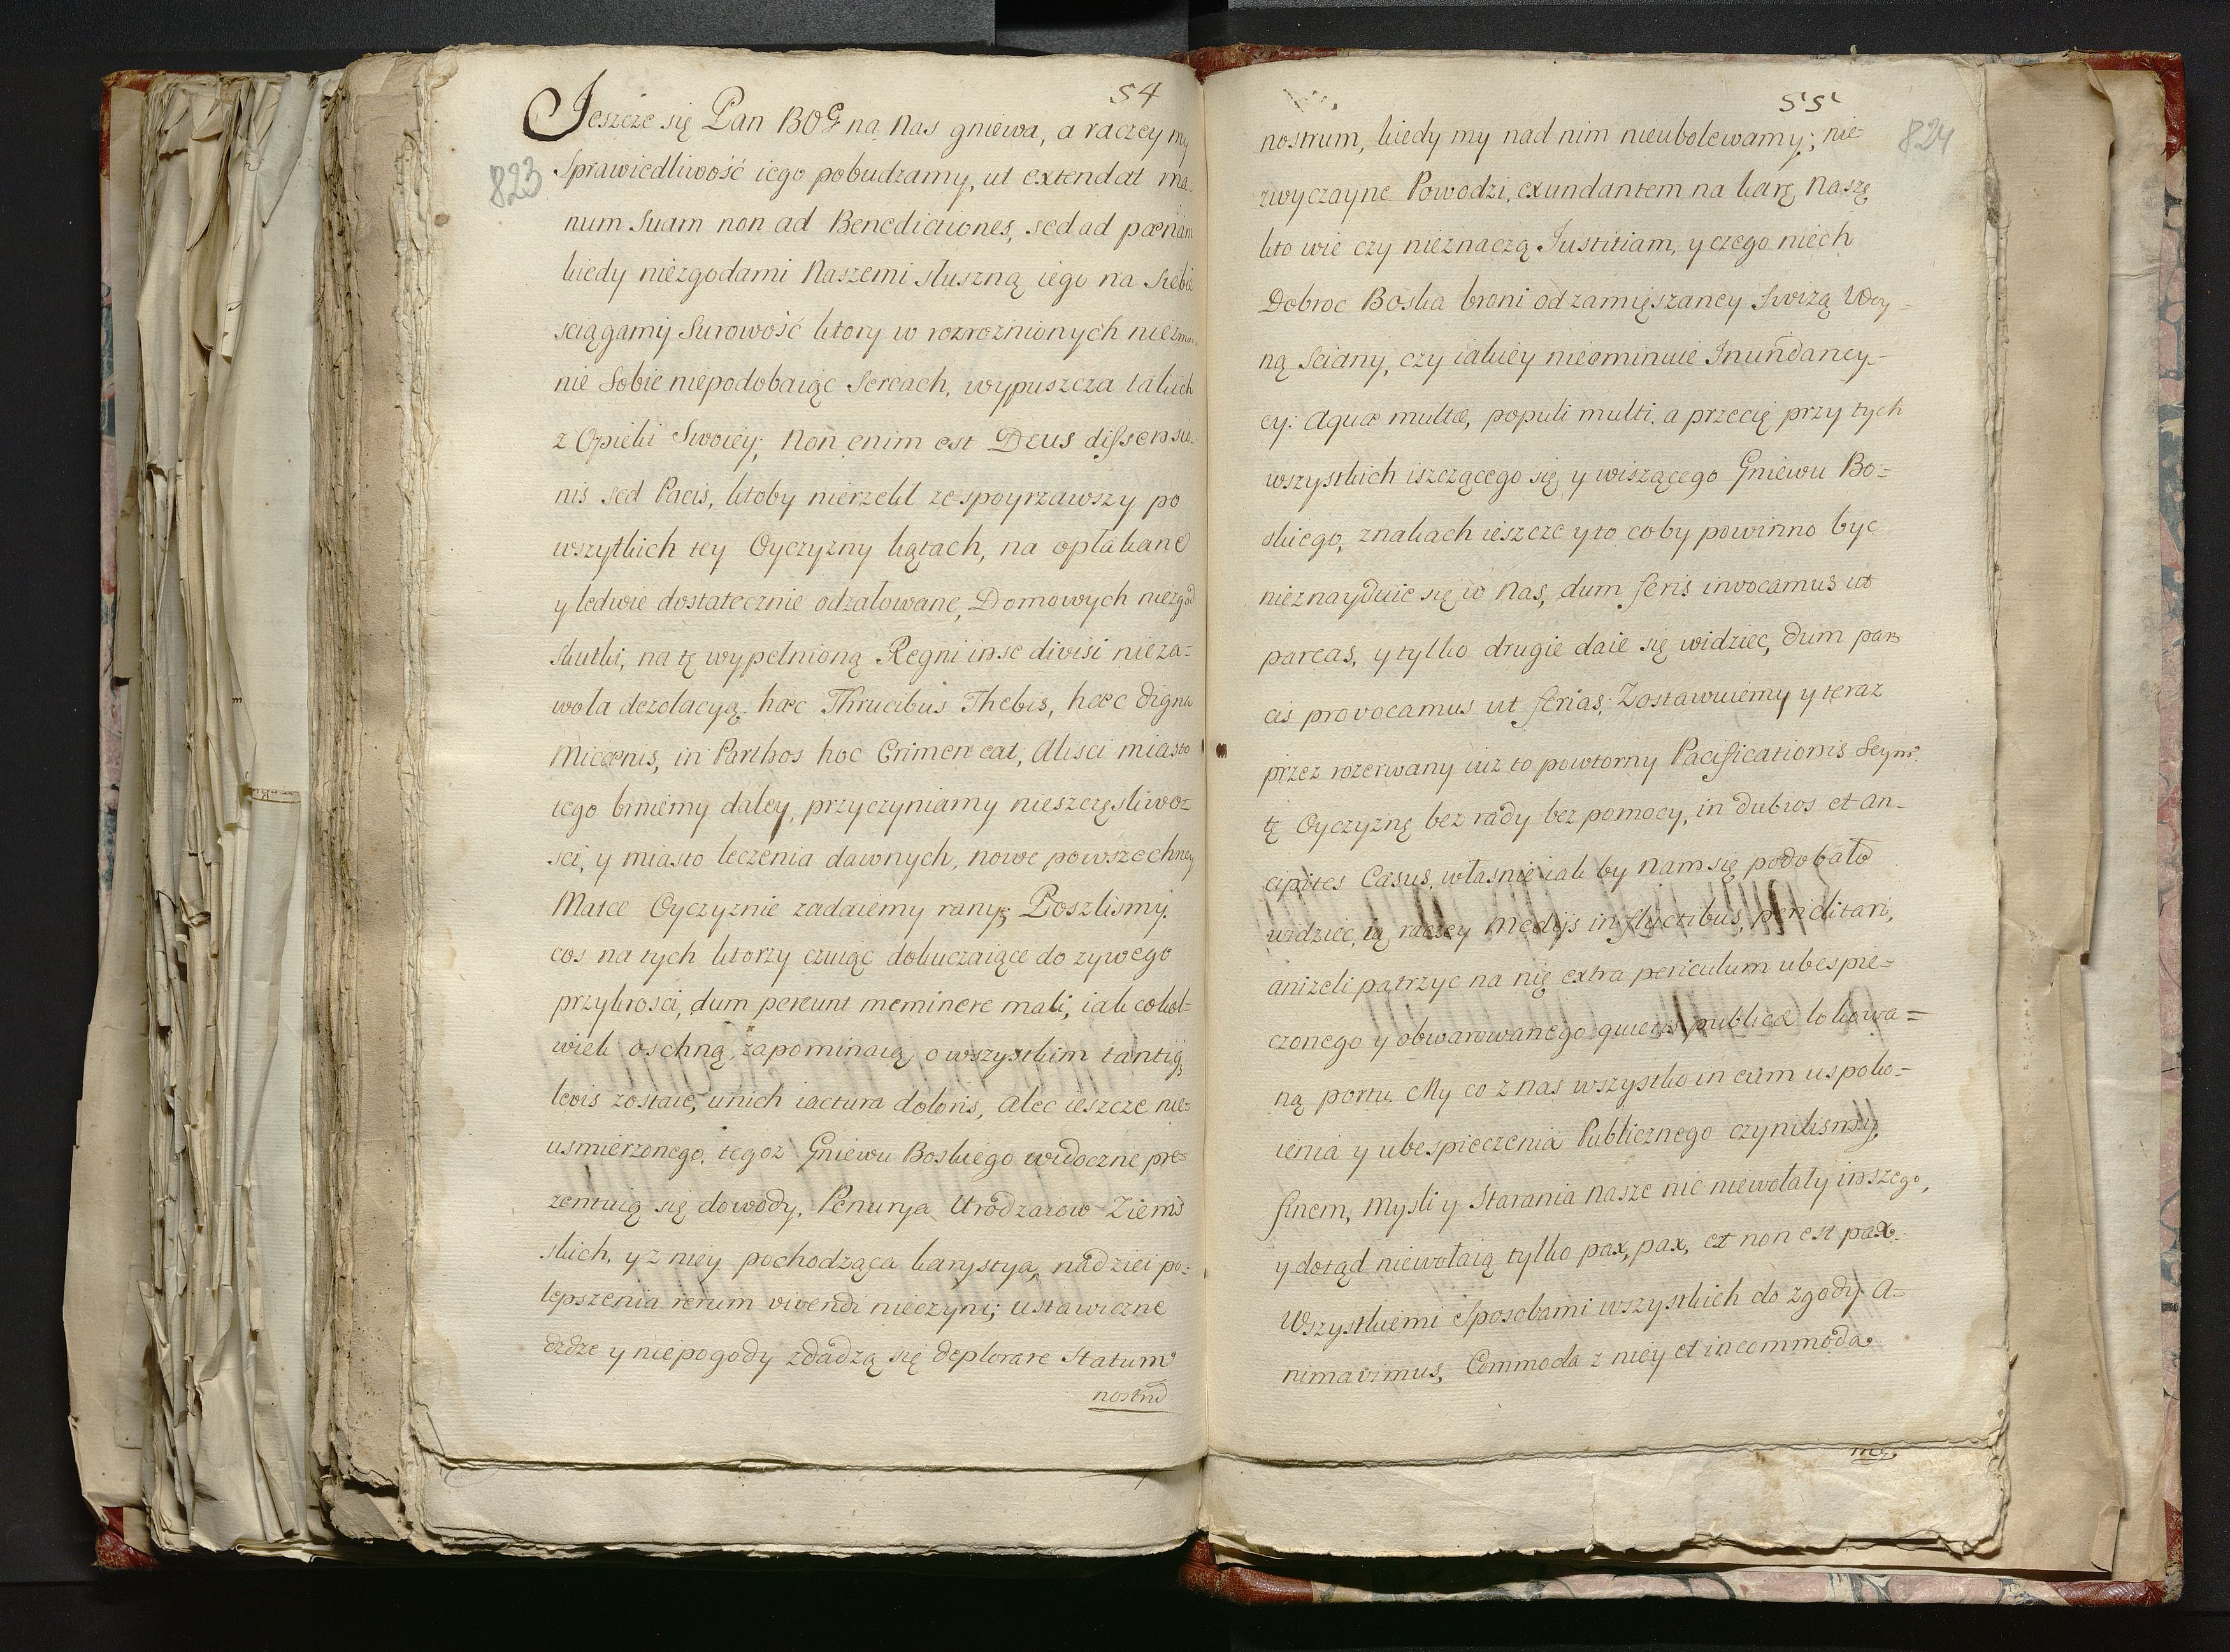 54
823
Jeszcze się Pan BOG na Nas gniewa, a raczey my
Sprawiedliwość iego pobudzamy, ut extendat ma-
num Suam non ad Benedictiones, sed ad pœnam
kiedy niezgodami Naszemi słuszną iego na siebie
sciągamy Surowość ktory w rozroznionych
nie Sobie niepodobaiąc Sercach, wypuszcza takich
z Opieki Swoiey; Non enim est Deus dissensio-
nis sed Pacis, ktoby nierzekł ze spoyrzawszy po
wszytkich tey Oyczyzny kątach, na opłakane
y ledwie dostatecznie odzałowane, Domowych niezgod
skutki, na tę wypełnioną Regni in se divisi nieza-
woła dezolacyą. hæc Thrucibus Thebis, hæc digna
Micænis, in Parthos hoc Crimen eat; Alisci miasto
tego brniemy daley, przyczyniamy nieszczęsliwo-
sci, y miasto leczenia dawnych, nowe powszechney
Matce Oyczyznie zadaiemy rany; Poszlismy
cos na tych ktorzy czuiąc dokuczaiące do zywego
przykrosci, dum pereunt meminere mali, iak cokol-
wiek oschną, zapominaią o wszystkim tantiq;
levis zostaie, unich iactura doloris, Alec ieszcze nie-
usmierzonego, tegoz Gniewu Boskiego widoczne pre-
zentuią się dowody. Penurya Urodzaiow Ziem-
skich, y z niey pochodząca karystya, nadziei po-
lepszenia rerum vivendi nieczyni; ustawiczne
dzdze y niepogody zdadzą się deplorare Statum
nostrū
55
824
nostrum, kiedy my nad nim nieubolewamy; nie-
zwyczayne Powodzi, exundantem na karę Naszę
kto wie czy nieznaczą Justitiam, y czego niech
Dobroc Boska broni od zamięszaney
ną sciany, czy iakiey nieominuie Inundancy-
cy: Aquæ multæ, populi multi. a przecię przy tych
wszystkich iszczącego się y wiszącego Gniewu Bo-
skiego, znakach ieszcze y to co by powinno byc
nieznayduie się w Nas, dum feris invocamus ut
parcas, y tylko drugie daie się widziec, dum par-
cis provocamus ut ferias; Zostawuiemy y teraz
przez rozerwany iuz to powtorny Pacificationis Seym
tę Oyczyznę bez rady bez pomocy, in dubios et an-
cipites Casus, własnie iak by nam się podobało
widziec, ią raczey Medijs in fluctibus, periclitari,
anizeli patrzyc na nię extra periculum ubespie-
czonego y obwarowanego quietis publicæ lokowa-
ną portu. My co z nas wszystko in eum uspoko-
ienia y ubespieczenia Publicznego czynilismy,
finem, Mysli y Starania Nasze nic niewołały inszego,
y dotąd niewołaią tylko pax, pax, et non est pax.
Wszystkiemi Sposobami wszystkich do zgody A-
nimavimus, Commoda z niey et incommoda